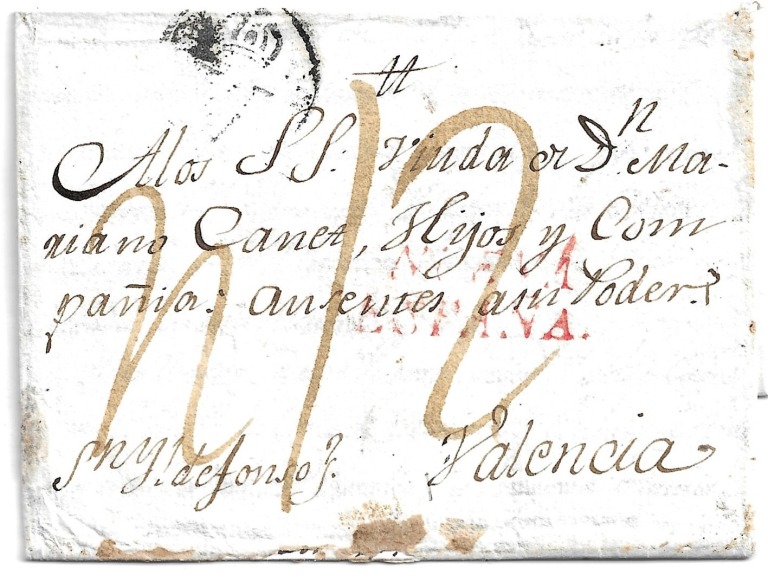 tt
Alos SS. Viuda de Dn. Ma-
riano Canet, Hijos y Com
pañia: ausentes asu Poder.
NUEVA
ESPAÑA.
Sn Yldefonso
Valencia